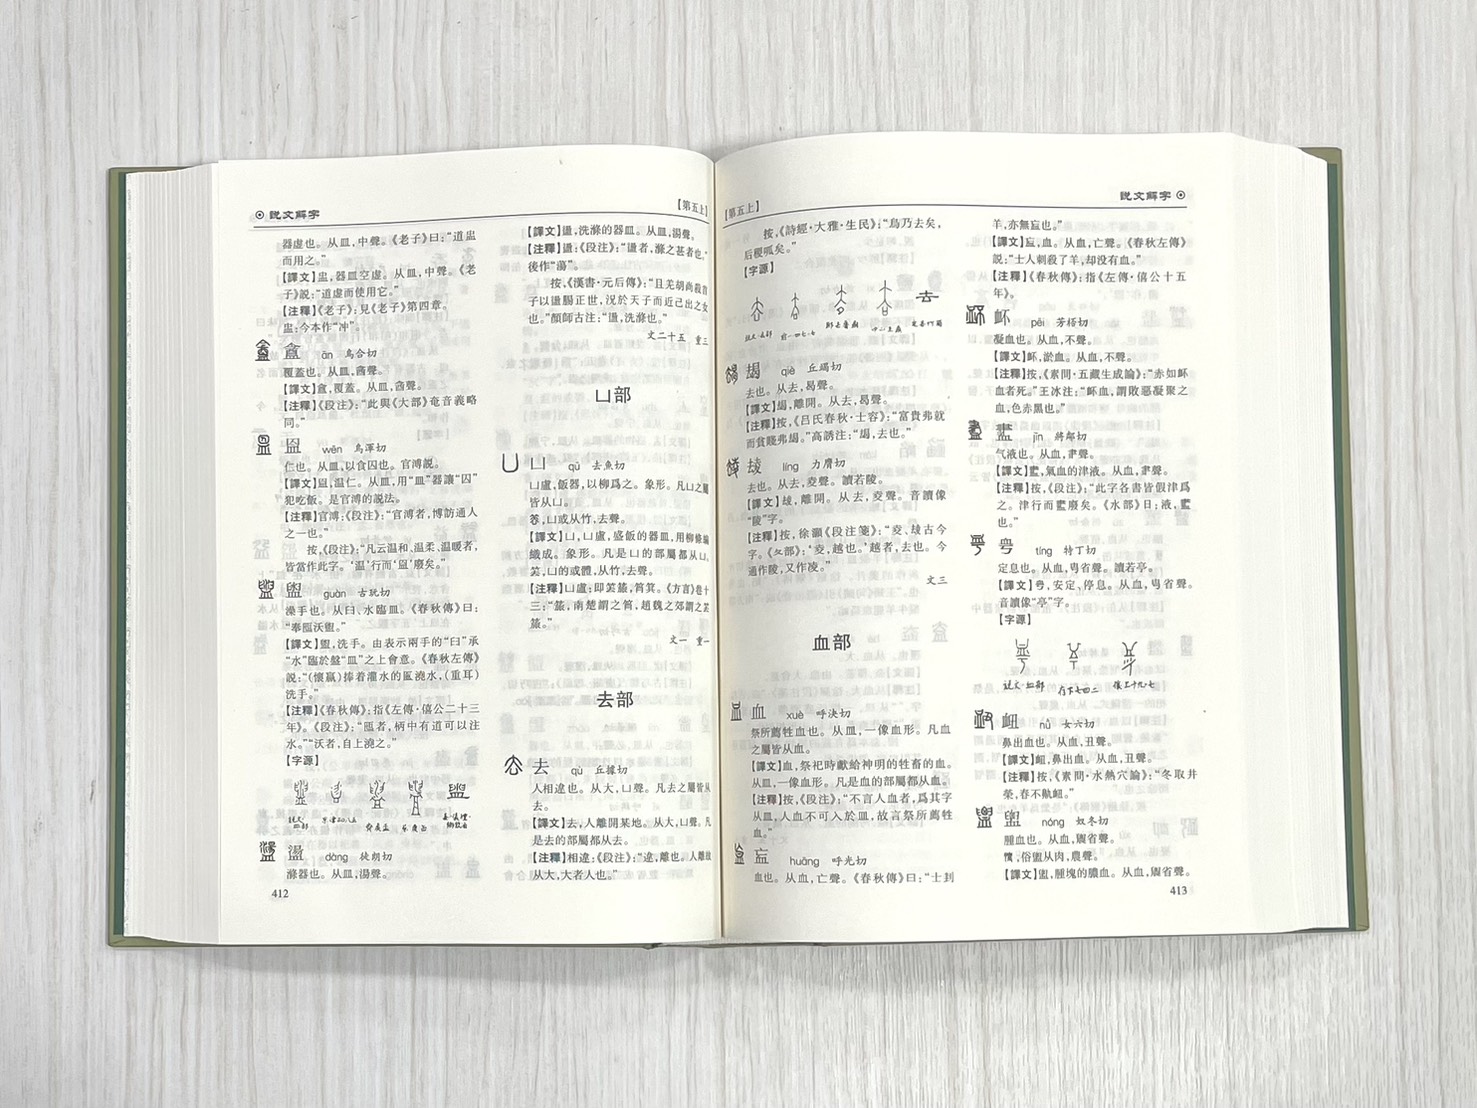 說文解字
【第五上】
器虛也。从皿,中聲。《老子》曰:“道盅
而用之。”
【譯文】盅,器皿空虛。从皿,中聲。《老
子》說:“道虛而使用它。”
【注釋】《老子》:見《老子》第四章。
盅:今本作“冲”。
盦 ān 烏合切
覆蓋也。从皿,酓聲。
【譯文】盦,覆蓋。从皿,酓聲。
【注釋】《段注》:“此與《大部》奄音義略
同。”
𥁕 wēn 烏渾切
仁也。从皿,以食囚也。官溥說。
【譯文】𥁕,温仁。从皿,用“皿”器讓“囚”
犯吃飯。是官溥的說法。
【注釋】官溥:《段注》:“官溥者,博訪通人
之一也。”
按,《段注》:“凡云温和、温柔、温暖者,
皆當作此字。‘温’行而‘𥁕’廢矣。”
盥 guàn 古玩切
澡手也。从臼、水臨皿。《春秋傳》曰:
“奉匜沃盥。”
【譯文】盥,洗手。由表示兩手的“臼”承
“水”臨於盤“皿”之上會意。《春秋左傳》
說:“(懷嬴)捧着灌水的匜澆水,(重耳)
洗手。”
【注釋】《春秋傳》:指《左傳·僖公二十三
年》。《段注》:“匜者,柄中有道可以注
水。”“沃者,自上澆之。”
【字源】
盪 dàng 徒朗切
滌器也。从皿,湯聲。
412
【譯文】盪,洗滌的器皿。从皿,湯聲。
【注釋】盪:《段注》:“盪者,滌之甚者也。”
後作“蕩”。
按,《漢書·元后傳》:“且羌胡尚殺首
子以盪腸正世,況於天子而近已出之女
也。”顏師古注:“盪,洗滌也。”
文二十五 重三
凵部
凵 qū 去魚切
凵盧,飯器,以柳爲之。象形。凡凵之屬
皆从凵。
䒧,凵或从竹,去聲。
【譯文】凵,凵盧,盛飯的器皿,用柳條編
織成。象形。凡是凵的部屬都从凵。
䒧,凵的或體,从竹,去聲。
【注釋】凵盧:即䒧籚,筲箕。《方言》卷十
三:“籚,南楚謂之筲,趙魏之郊謂之䒧
籚。”
文一 重一
去部
去 qù 丘據切
人相違也。从大,凵聲。凡去之屬皆从
去。
【譯文】去,人離開某地。从大,凵聲。凡
是去的部屬都从去。
【注釋】相違:《段注》:“違,離也。人離故
从大,大者人也。”
【第五上】
說文解字
按,《詩經·大雅·生民》:“鳥乃去矣,
后稷呱矣。”
【字源】
朅 qiè 丘竭切
去也。从去,曷聲。
【譯文】朅,離開。从去,曷聲。
【注釋】按,《吕氏春秋·士容》:“富貴弗就
而貧賤弗朅。”高誘注:“朅,去也。”
䔖 líng 力膺切
去也。从去,夌聲。讀若陵。
【譯文】離開。从去,夌聲。音讀像
“陵”字。
【注釋】按,徐灝《段注箋》:“夌、古今
字。《夊部》:‘夌,越也。’越者,去也。今
通作陵,又作凌。”
文三
血部
血 xuè 呼決切
祭所薦牲血也。从皿,一像血形。凡血
之屬皆从血。
【譯文】血,祭祀時獻給神明的牲畜的血。
从皿,一像血形。凡是血的部屬都从血。
【注釋】按,《段注》:“不言人血者,爲其字
从皿,人血不可入於皿,故言祭所薦牲
血。”
衁 huāng 呼光切
血也。从血,亡聲。《春秋傳》曰:“士刲
羊,亦無衁也。”
【譯文】衁,血。从血,亡聲。《春秋左傳》
說:“士人刺殺了羊,却没有血。”
【注釋】《春秋傳》:指《左傳·僖公十五
年》。
衃 pēi 芳桮切
凝血也。从血,不聲。
【譯文】衃,淤血。从血,不聲。
【注釋】按,《素問·五藏生成論》:“赤如衃
血者死。”王冰注:“衃血,謂敗惡凝聚之
血,色赤黑也。”
𧗁 jīn 將鄰切
气液也。从血,𦘔聲。
【譯文】𧗁,氣血的津液。从血,𦘔聲。
【注釋】按,《段注》:“此字各書皆假津爲
之。津行而𧗁廢矣。《水部》曰:液,𧗁
也。”
甹 tíng 特丁切
定息也。从血,甹省聲。讀若亭。
【譯文】安定,停息。从血,甹省聲。
音讀像“亭”字。
【字源】
衄 nǜ 女六切
鼻出血也。从血,丑聲。
【譯文】衄,鼻出血。从血,丑聲。
【注釋】按,《素問·水熱穴論》:“冬取井
榮,春不鼽衄。”
盥 nóng 奴冬切
腫血也。从血,農省聲。
膿,俗盥从肉,農聲。
【譯文】腫塊的膿血。从血,農省聲。
413